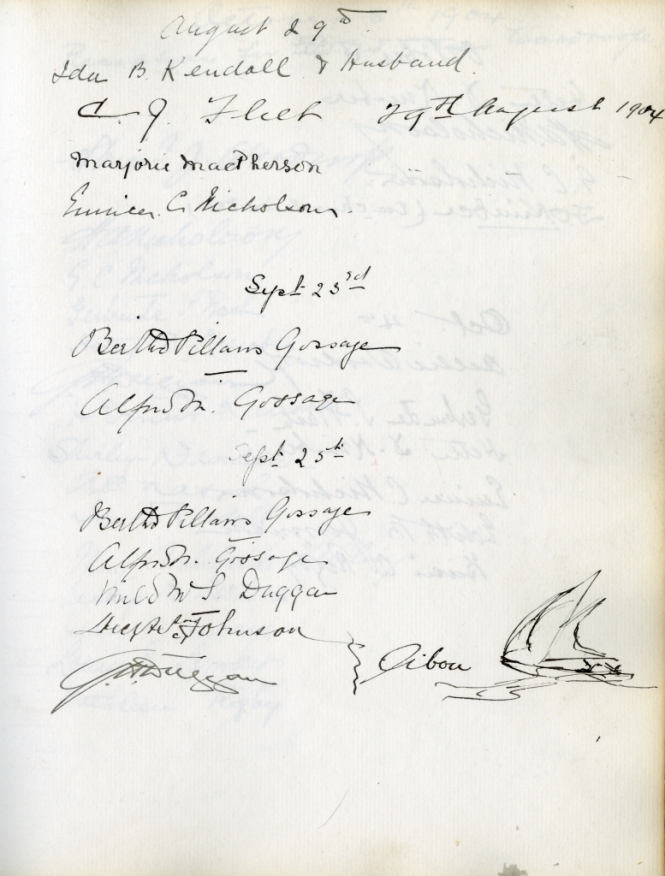 August 29th
Ida B. Kendall & Husband.
C. J. Fleet 29th August 1904
Marjorie MacPherson
Eunice C. Nicholson.
Sept 23rd
Bertha Pillans Gossage
Alfred M. Gossage
Sept 25th
Bertha Pillans Gossage
Alfred M. Gossage
Mildred S. Duggan
Johnson
G. H. Duggan